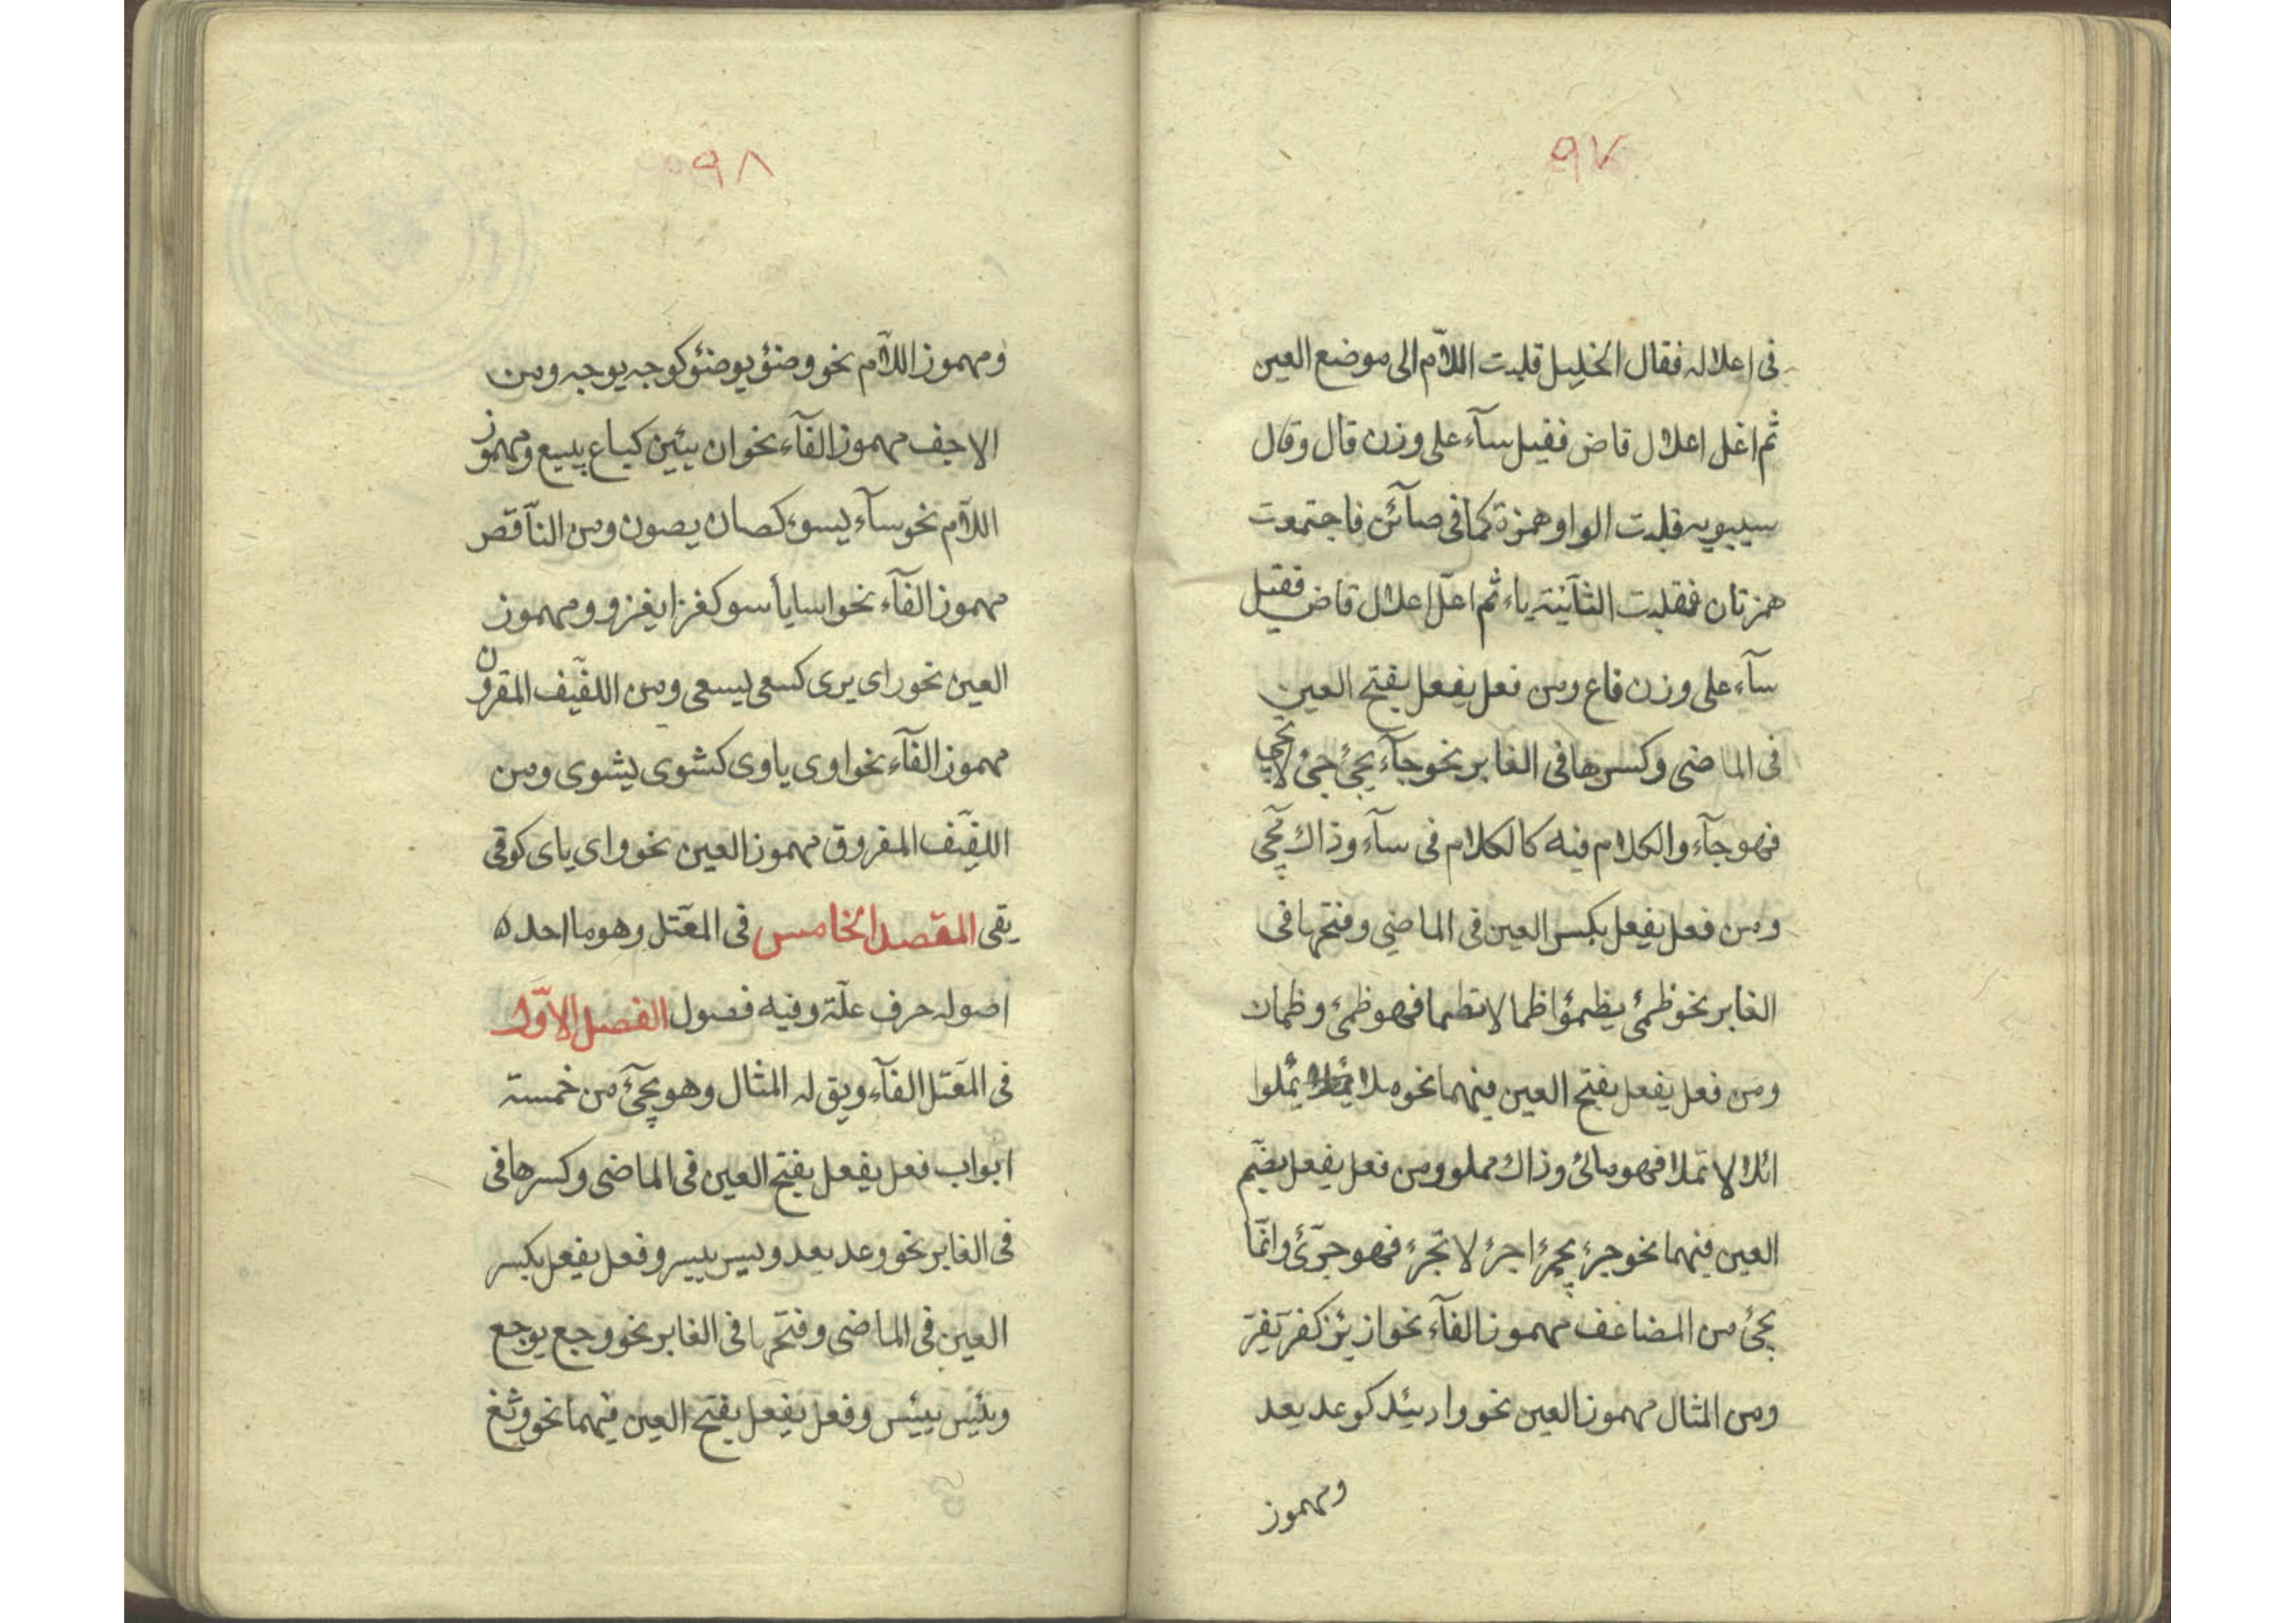 ٩٧
فى اعلاله فقال الخليل قلبت اللآم الى موضع العين
ثم اعل اعلال قاض فقيل سآء على وزن قال وقال
سيبويه قلبت الواو همزة كما فى صآئن فاجتمعت
همزتان فقلبت الثآنية ياء ثم اعلّ اعلال قاض فقيل
سآء على وزن فاع ومن فعل يفعل بفتح العين
فى الماضى وكسرها فى الغابر نحو جآء يجئ جئ لا تجئ
فهو جآء والكلام فيه كالكلام فى سآء وذاك مجئ
ومن فعل يفعل بكسر العين فى الماضى وفتحها فى
الغابر نحو ظمئ يظمؤ اظما لا تظما فهو ظمئ وظمان
ومن فعل يفعل بفتح العين فيهما نحو ملا يملوا
املا لا تملا فهو مالئ وذاك مملو ومن فعل يفعل بضم
العين فيهما نحو جرء يجرء اجرء لا تجرء فهو جرئ وانمّا
يجئ من المضاعف مهموز الفآء نحو از يئز كفر يفر
ومن المثال مهموز العين نحو واد يئد كوعد يعد
ومهموز
٩٨
ومهموز اللآم نحو وضئو يوضئو كوجه يوجه ومن
الاجف مهموز الفآء نحو ان يئين كباع يبيع ومهموز
اللآم نحو سآء يسوء كصان يصون ومن النآقص
مهموز الفآء نحو اسا يأسو كغزا يغزو ومهموز
العين نحو راى يرى كسعى يسعى ومن اللفيف المقرون
مهموز الفآء نحو اوى ياوى كشوى يشوى ومن
اللفيف المفروق مهموز العين نحو واى ياى كوقى
يقى المقصد الخامس فى المعتل وهو ما احد
اصوله حرف علّة وفيه فصول الفصل الاوّل
فى المعتل الفآء ويق له المثال وهو يجئ من خمسة
ابواب فعل يفعل بفتح العين فى الماضى وكسرها فى
فى الغابر نحو وعد يعد ويسر ييسر وفعل يفعل بكسر
العين فى الماضى وفتحها فى الغابر نحو وجع يوجع
ويئس ييئس وفعل يفعل بفتح العين فيهما نحو وثغ